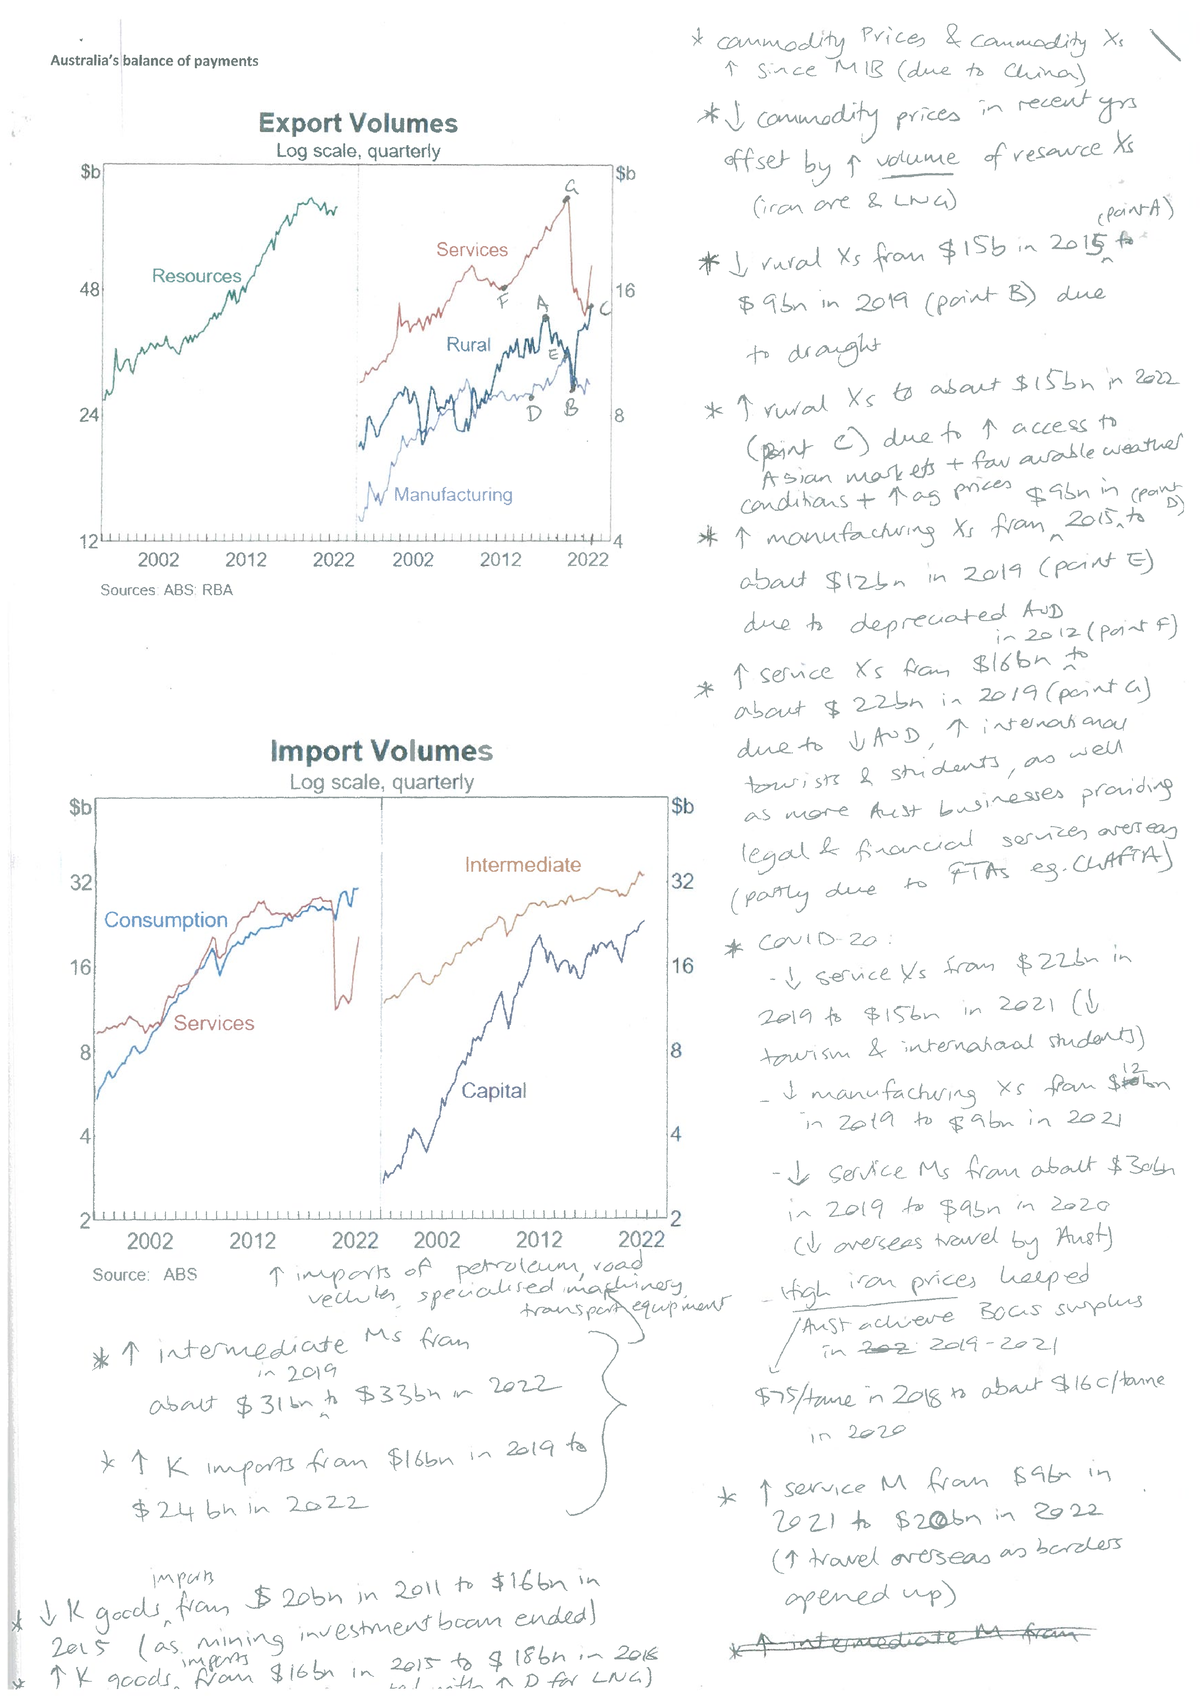 Australia's balance of payments
Export Volumes
Log scale, quarterly
$b
$b
G
Services
Resources
48
16
F
A
C
Rural
E
D
B
24
8
Manufacturing
12
4
2002
2012
2022
2002
2012
2022
Sources: ABS: RBA
Import Volumes
Log scale, quarterly
$b
$b
Intermediate
32
32
Consumption
16
16
Services
8
8
Capital
4
4
2
2
2002
2012
2022
2002
2012
2022
Source: ABS
↑ imports of petroleum, road
vechiles, specialised machinery,
transport equipment
* ↑ intermediate Ms from
in 2019
about $31bn to $33bn in 2022
* ↑ K imports from $16bn in 2019 to
$24bn in 2022
imports
* ↓ K goods from $20bn in 2011 to $16bn in
2015 (as mining investment boom ended)
imports
* ↑ K goods, from $16bn in 2015 to $18bn in 2018
with ↑ D for LNG)
* commodity Prices & commodity Xs
↑ since MIB (due to China)
* ↓ commodity prices in recent yrs
offset by ↑ volume of resource Xs
(iron ore & LNG)
(point A)
* ↓ rural Xs from $15b in 2015 to
$9bn in 2019 (point B) due
to drought
* ↑ rural Xs to about $15bn in 2022
(point C) due to ↑ access to
Asian markets + favourable weather
conditions + ↑ ag prices
$9bn in (point D)
* ↑ manufacturing Xs from 2015 to
about $12bn in 2019 (point E)
due to depreciated AUD
in 2012 (point F)
* ↑ service Xs from $16bn to
about $22bn in 2019 (point G)
due to ↓ AUD, ↑ international
tourists & students, as well
as more Aust businesses providing
legal & financial services overseas
(partly due to FTAs eg. ChAFTA)
* COVID-20:
- ↓ service Xs from $22bn in
2019 to $15bn in 2021 (↓
tourism & international students)
- ↓ manufacturing Xs from $12bn
in 2019 to $9bn in 2021
- ↓ service Ms from about $30bn
in 2019 to $9bn in 2020
(↓ overseas travel by Aust)
- High iron prices helped
Aust achieve BOGS surplus
in 202 2019-2021
$75/tonne in 2018 to about $160/tonne
in 2020
* ↑ service M from $9bn in
2021 to $20bn in 2022
(↑ travel overseas as borders
opened up)
* ↑ intermediate M from